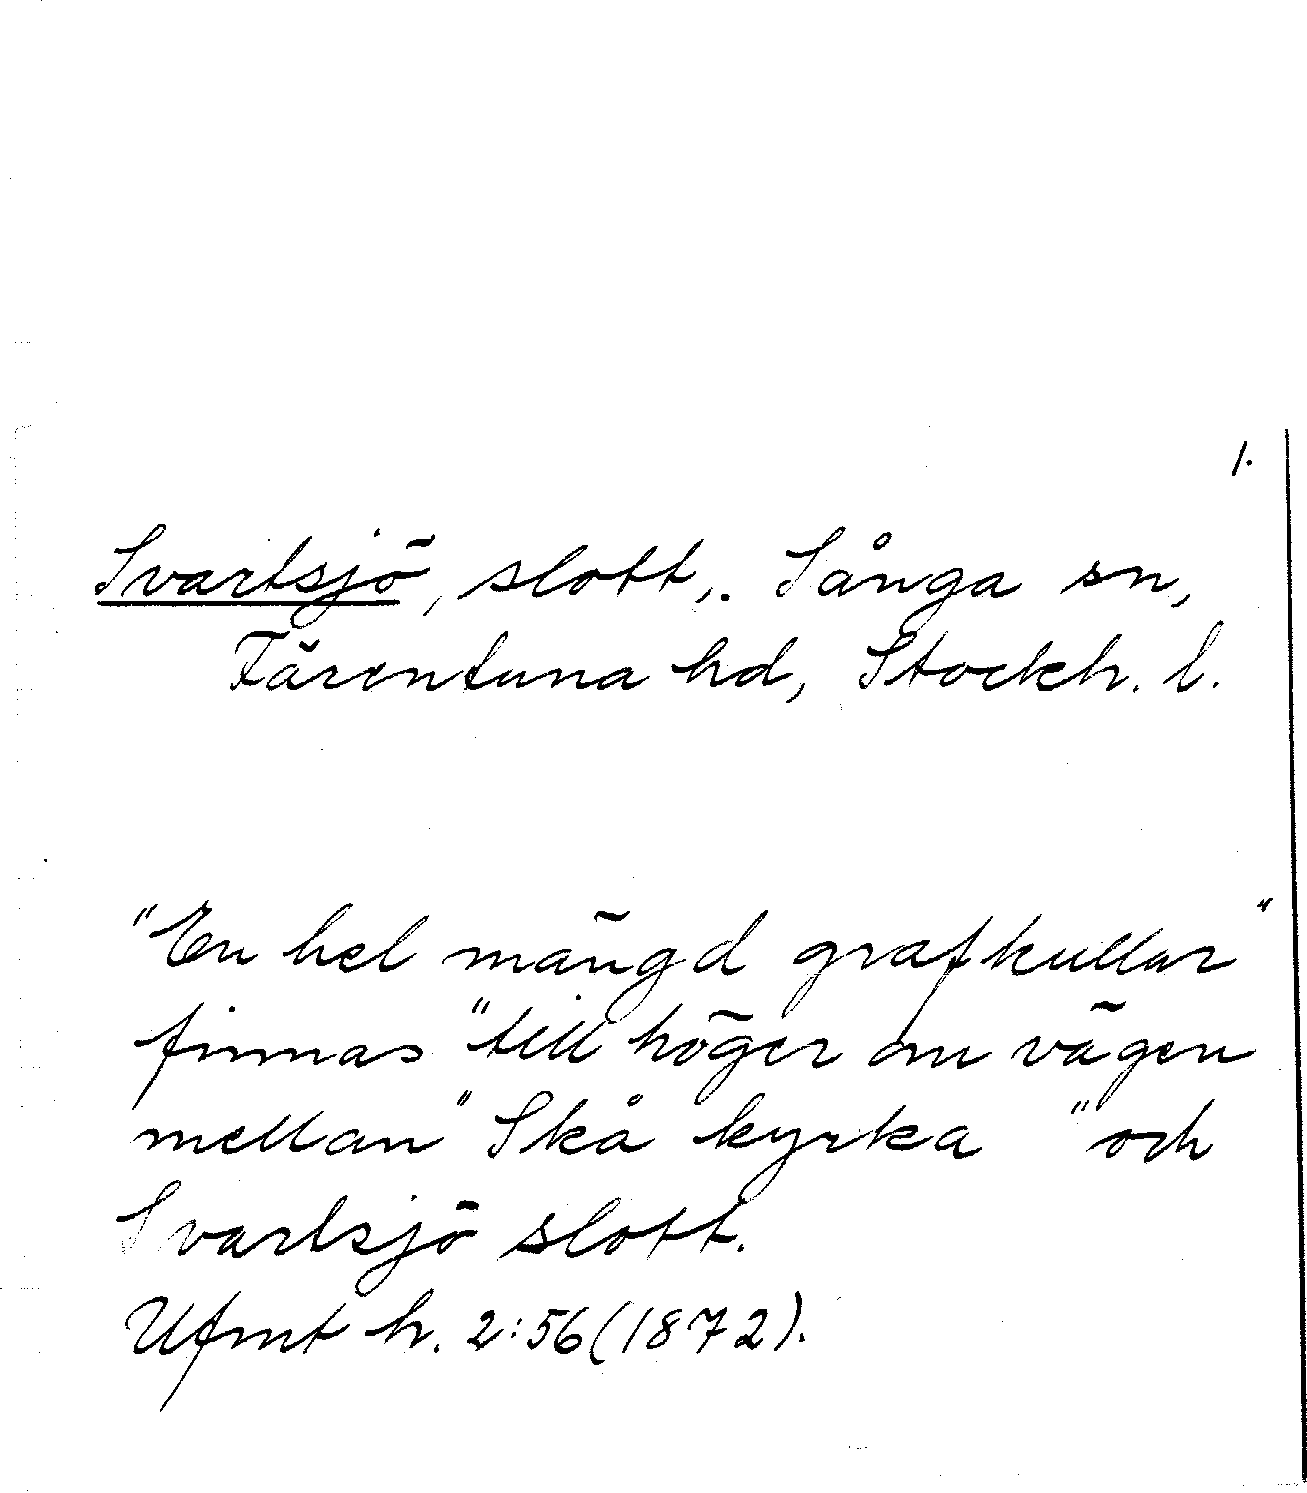 1.
Svartsjö, slott,. Sånga sn,
Färentuna hd, Stockh. l.
"En hel mängd grafkullar"
finnas "till höger om vägen
mellan" Skå kyrka "och
Svartsjö slott.
Ufmt h. 2:56(1872).